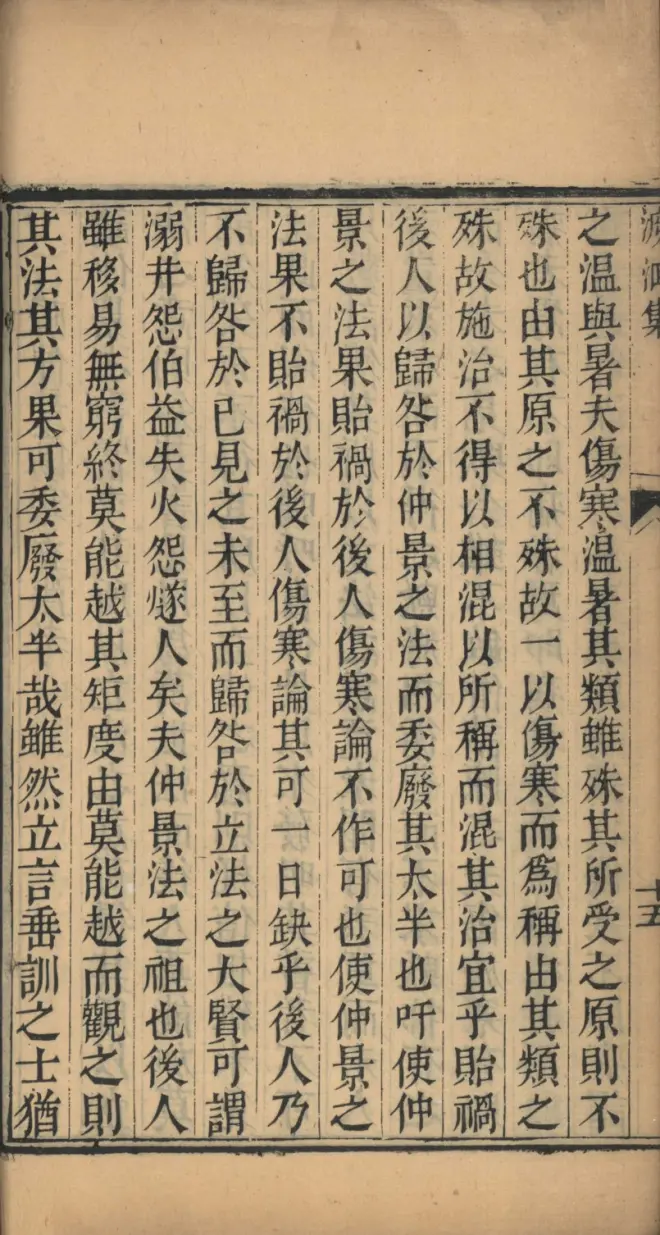 溯洄集
十五
之温與暑夫傷寒温暑其類雖殊其所受之原則不
殊也由其原之不殊故一以傷寒而為稱由其類之
殊故施治不得以相混以所稱而混其治宜乎貽禍
後人以歸咎於仲景之法而委廢其太半也吁使仲
景之法果貽禍於後人傷寒論不作可也使仲景之
法果不貽禍於後人傷寒論其可一日缺乎後人乃
不歸咎於已見之未至而歸咎於立法之大賢可謂
溺井怨伯益失火怨燧人矣夫仲景法之祖也後人
雖移易無窮終莫能越其矩度由莫能越而觀之則
其法其方果可委廢太半哉雖然立言垂訓之士猶